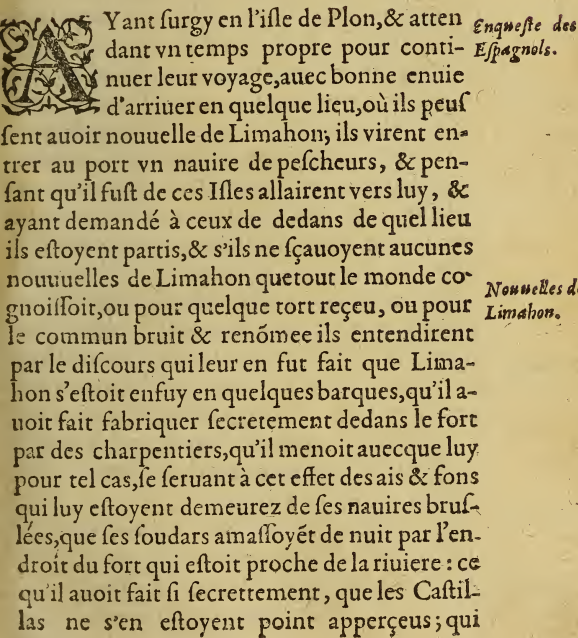 AYant ſurgy en l'iſle de Plon, & atten
dant vn temps propre pour conti-
nuer leur voyage, auec bonne enuie
d'arriuer en quelque lieu, où ils peuſ
ſent auoir nouuelle de Limahon; ils virent en-
trer au port vn nauire de peſcheurs, & pen-
ſant qu'il fuſt de ces Iſles allairent vers luy, &
ayant demandé à ceux de dedans de quel lieu
ils eſtoyent partis, & s'ils ne ſçauoyent aucunes
nouuuelles de Limahon quetout le monde co-
gnoiſſoit, ou pour quelque tort reçeu, ou pour
le commun bruit & renõmee ils entendirent
par le diſcours qui leur en fut fait que Lima-
hon s'eſtoit enfuy en quelques barques, qu'il a-
uoit fait fabriquer ſecretement dedans le fort
par des charpentiers, qu'il menoit auecque luy
pour tel cas, ſe ſeruant à cet effet des ais & fons
qui luy eſtoyent demeurez de ſes nauires bruſ-
lées, que ſes ſoudars amaſſoyẽt de nuit par l'en-
droit du fort qui eſtoit proche de la riuiere : ce
qu'il auoit fait ſi ſecrettement, que les Caſtil-
las ne s'en eſtoyent point apperçeus ; qui
Enqueſte des
Eſpagnols.
Nouuelles de
Limahon.